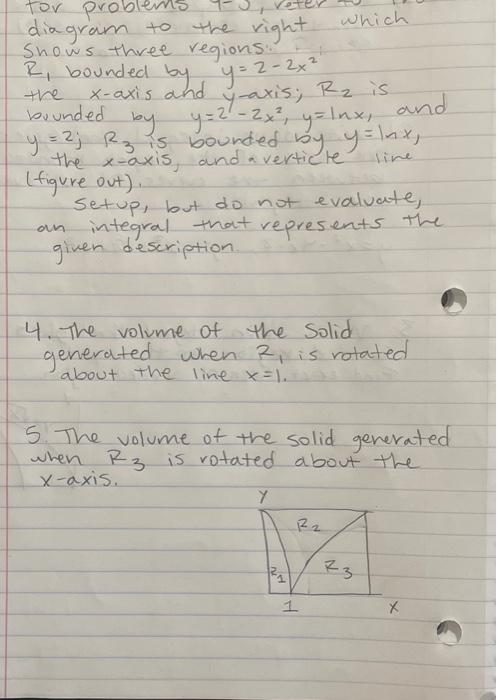 for problems 4-5, refer to
diagram to the right which
shows three regions:
R₁ bounded by y=2-2x²
the x-axis and y-axis; R₂ is
bounded by y=2-2x², y=lnx, and
y=2; R₃ is bounded by y=lnx,
the x-axis, and a verticle line
(figure out).
Setup, but do not evaluate,
an integral that represents the
given description.
4. The volume of the solid
generated when R₁ is rotated
about the line x=1.
5. The volume of the solid generated
when R₃ is rotated about the
x-axis.
Y
R₂
R₁ R₃
1 X